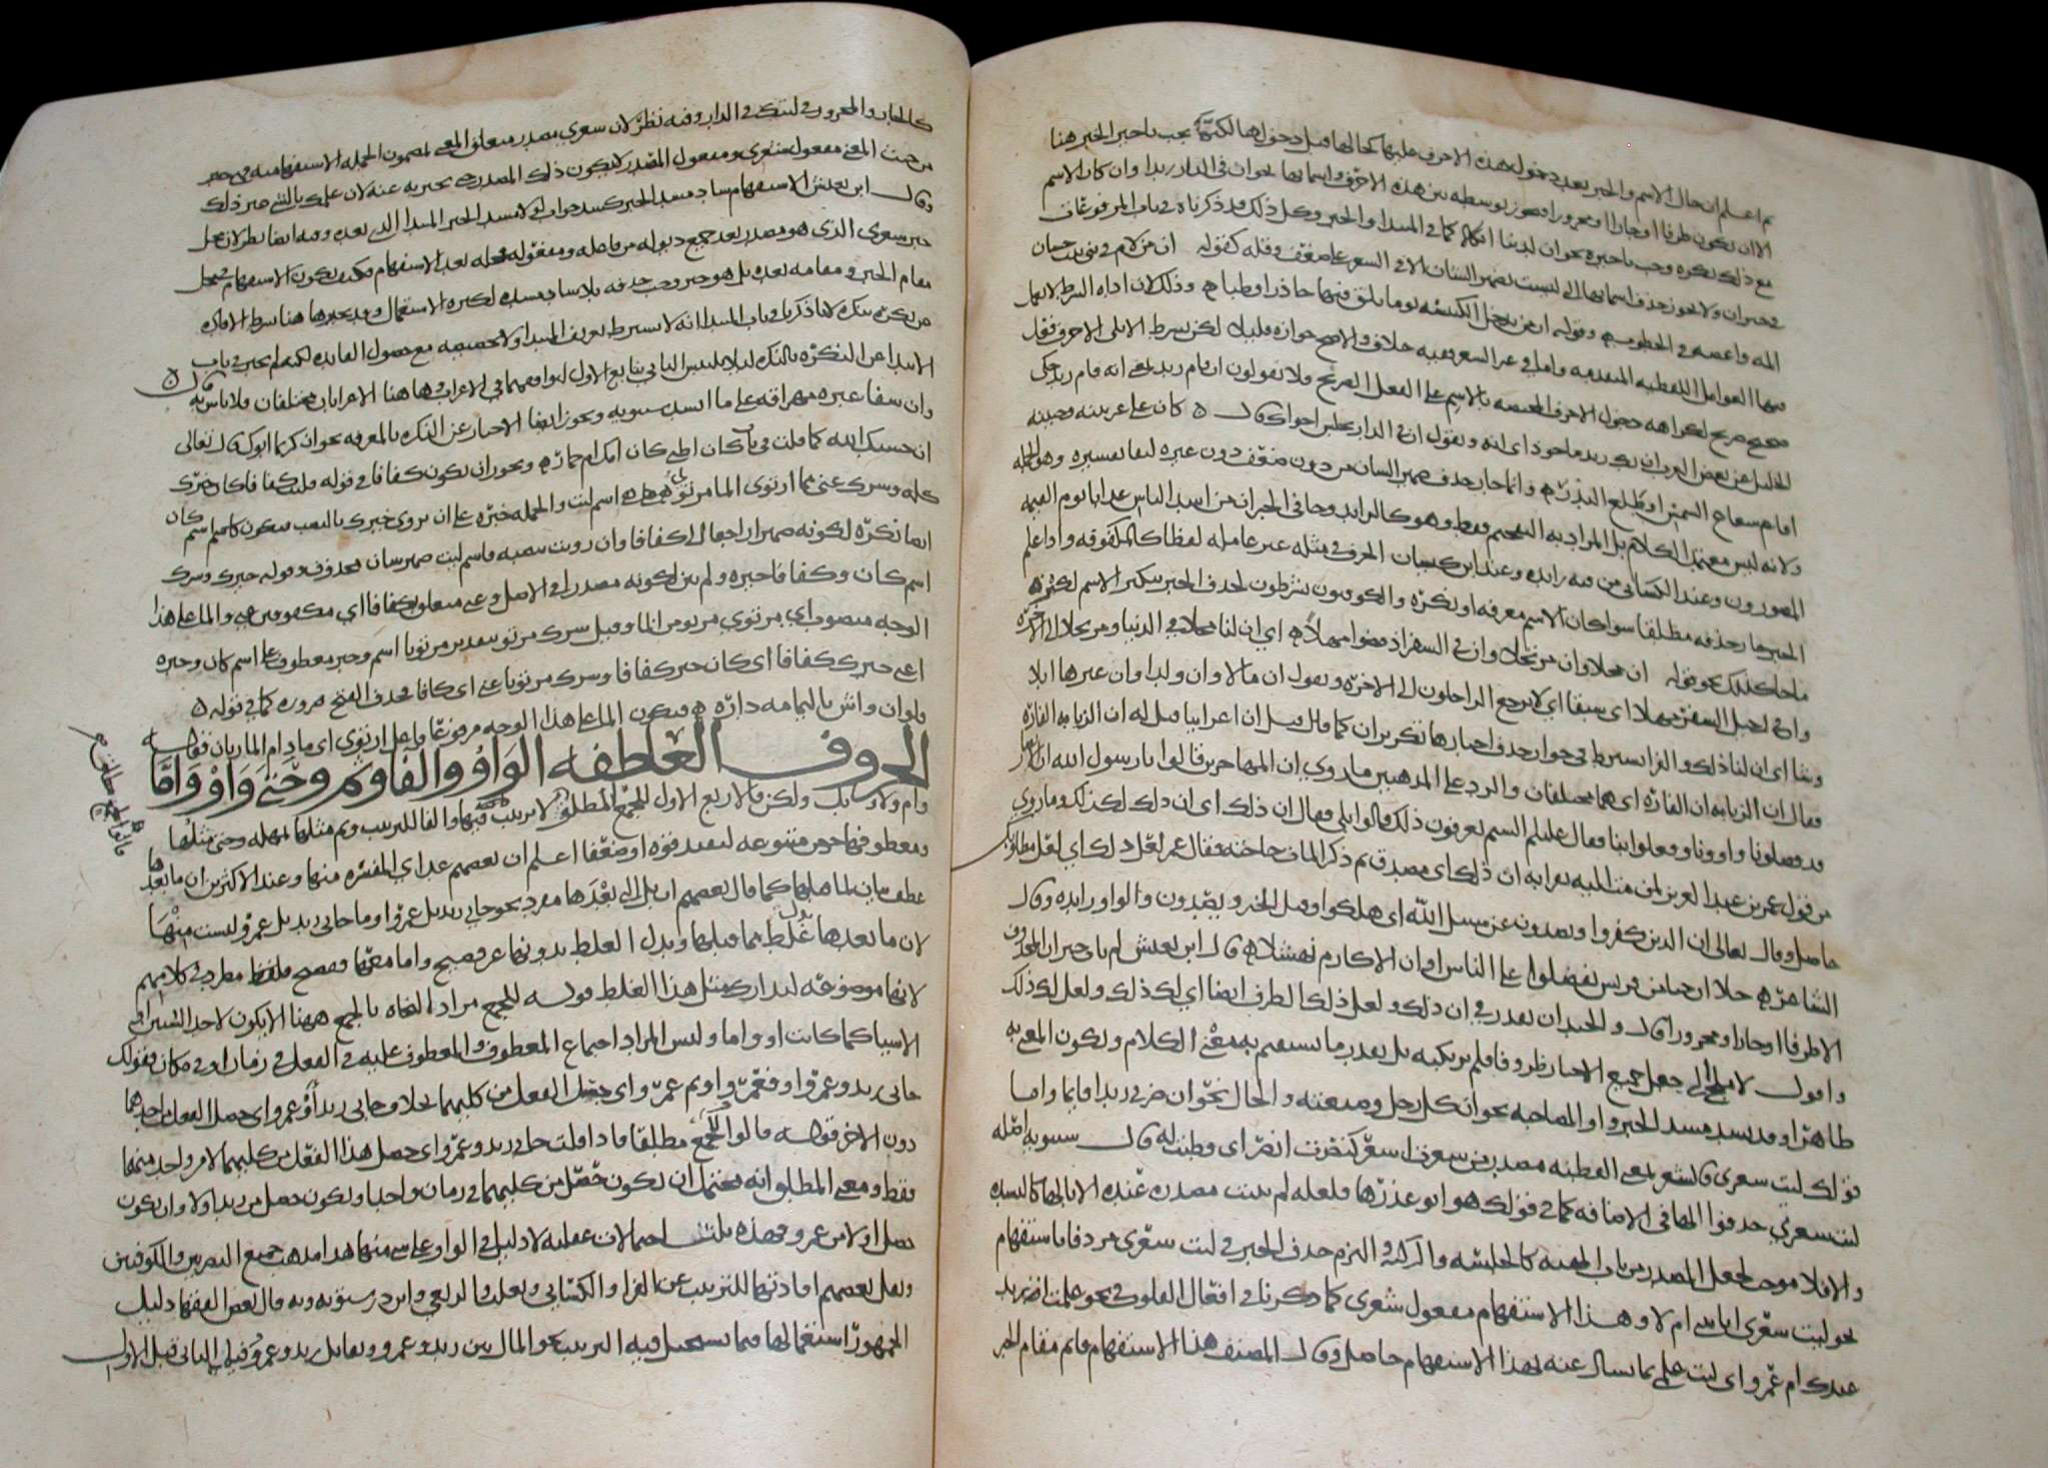 ثم اعلم ان حال الاسم والخبر بعد دخول هذه الاحرف عليهما كحالهما قبل دخولها لكنه يجب تاخير الخبر هنا
الا ان يكون ظرفا او جارا ومجرورا فيجوز توسطه بين هذه الاحرف واسمائها نحو ان في الدار زيدا وان كان الاسم
مع ذلك نكرة وجب تاخيره نحو ان لدينا انكالا كما في المبتدا والخبر وكل ذلك قد ذكرناه في باب المرفوعات
ولا يجوز حذف اسمائها التي ليست بضمير الشان الا في الشعر على ضعف وقلة كقوله ان من لام في بني بنت حسان
المه واعصه في الخطوب وقوله ان من يدخل الكنيسة يوما يلق فيها جاذرا وظباء وذلك لان اداة الشرط لا يعمل
فيها العوامل اللفظية المتقدمة واما في غير الشعر ففيه خلاف والاصح جوازه قليلا لكن بشرط الا يلي الاحرف فعل
صحيح صريح لكراهة دخول الاحرف المختصة بالاسم على الفعل الصريح فلا تقولون ان قام زيد بمعنى انه قام زيد حكى
الخليل عن بعض العرب ان بك زيد ماخوذ اى انه وتقول ان في الدار يجلس اخواك قال كان على عرنينه وجبينه
اقام شعاع الشمس او طلع البدر وانما جاز حذف ضمير الشان من دون ضعف دون غيره لبقاء تفسيره وهو الجملة
ولانه ليس معتمد الكلام بل المراد به التفخيم فقط وهو كالزايد وجا في الخبر ان من اشد الناس عذابا يوم القيمة
المصورون وعند الكسائي من فيه زايدة وعند ابن كيسان الحرف في مثله غير عاملة لفظا كالمكفوفة واذا علم
الخبر جاز حذفه مطلقا سوا كان الاسم معرفة او نكرة والكوفيون يشرطون لحذف الخبر تنكير الاسم لكثرة
ما جا كذلك نحو قوله ان محلا وان مرتحلا وان في السفر اذ مضوا مهلا اي ان لنا محلا في الدنيا ومرتحلا الى الاخرة
وان في رحيل السفر مهلا اى سبقا اي لا يرجع الراحلون الى الاخرة وتقول ان مالا وان ولدا وان غيرها ابلا
وشا اى ان لنا ذلك والفرا يشترط في جواز حذف اخبارها تكرير ان كما قال قيل ان اعرابيا قيل له ان الزبابة الفارة
فقال ان الزبابة ان الفارة اى هما مختلفان والرد على المذهبين ما روي ان المهاجرين قالوا يا رسول الله ان الانصار
قد فضلونا واوونا وفعلوا بنا فقال عليه السلم الستم تعرفون ذلك قالوا بلى فقال ان ذلك اى ان ذلك لكذلك وما روي
من قول عمر بن عبد العزيز لمن مت اليه بقرابة ان ذلك اى مصدق ثم ذكر المات حاجته فقال عمر لعل ذلك اي لعل مطلوبك
حاصل وقال تعالى ان الذين كفروا ويصدون عن سبيل الله اى هلكوا وقيل الخبر ويصدون والواو زايدة وقال
الشاعر خلا ان حيا من قريش تفضلوا على الناس او ان الاكارم نهشلا قال ابن يعيش لم يات خبر ان المحذوف
الا ظرفا او جارا ومجرورا قال والجيد ان يقدر في ان ذلك ولعل ذلك الظرف ايضا اي لك ذلك ولعل لك ذلك
واقول لا ملجي الى جعل جميع الاخبار ظروفا فلم نرتكبه بل يقدر ما يستقيم به معنى الكلام ويكون المعنى به
ظاهرا وقد يسد مسد الخبر واو المصاحبة نحو ان كل رجل وضيعته والحال نحو ان ضربي زيدا قايما واما
قولك ليت شعري فالشعر بمعنى الفطنة مصدر من شعرت اشعر كنصرت انصر اى فطنت له قال سيبويه اصله
ليت شعرتي حذفوا الها في الاضافة كما في قولك هو ابو عذرها فلعله لم يثبت مصدره عنده الا بالها كالنشدة
والا فلا موجب لجعل المصدر من باب الهيئة كالجلسة والركبة والتزم حذف الخبر في ليت شعرى مردفا باستفهام
نحو ليت شعرى اياتي ام لا وهذا الاستفهام مفعول شعرى كما ذكرنا في افعال القلوب في نحو علمت ازيد
عندك ام عمرو اى ليت علمي بما يسال عنه بهذا الاستفهام حاصل وقال المصنف هذا الاستفهام قايم مقام الخبر
كالجار والمجرور في ليتك في الدار وفيه نظر لان شعري مصدر متعلق المعنى بمضمون الجملة الاستفهامية فهي
من حيث المعنى مفعول شعري ومفعول المصدر لا يكون ذلك المصدر حتى يخبر به عنه لان علمك بالشي غير ذلك
وقال ابن يعيش الاستفهام ساد مسد الخبر كسد جواب لولا مسد الخبر المبتدا الذي بعده وفيه ايضا نظر لان محل
خبر شعرى الذي هو مصدر بعد جميع ذيوله من فاعله ومفعوله فمحله بعد الاستفهام فكيف يكون الاستفهام في محل
مقام الخبر ومقامه بعده بل هو خبر وجب حذفه بلا ساد مسده لكثرة الاستعمال وقد يخبر هاهنا بشرط الافادة
عن نكرة بنكرة لانا ذكرنا في باب المبتدا انه لا يشترط تعريف المبتدا ولا تخصيصه مع حصول الفايدة لكنه لم يخبر في باب
الابتدا عن النكرة بالنكرة ليلا يلتبس الثاني بتابع الاول لتوافقهما في الاعراب وهاهنا الاعرابان مختلفان فلا باس به قال
وان شفا عبرة مهراقة على ما انشد سيبويه ويجوز ايضا الاخبار عن النكرة بالمعرفة نحو ان كريما ابوك قال تعالى
ان حسبك الله كما قلت في باب كان اظبي كان امك ام حمار ويجوز ان يكون كفافا في قوله فليت كفافا كان خيرك
كله وشرك عني ما ارتوى الما مرتوي اسم ليت والجملة خبره على ان يروى خيرك بالنصب فيكون اسم كان
ايضا نكرة لكونه ضميرا راجعا الى كفافا وان رويت بضمه فاسم ليت ضمير شان محذوف وقوله خيرك وشرك
اسم كان وكفافا خبره ولم يثن لكونه مصدرا في الاصل وعني متعلق بكفافا اي مكفوفين عني والما على هذا
الوجه منصوب اي مرتوي مرتو من الما وقيل شرك مرتو بتقدير مرتويا اسم وخبر معطوف على اسم كان وخبره
اعني خيرك كفافا اى كان خيرك كفافا وشرك مرتويا عني اى كافا فحذف الفتح ضرورة كما في قوله
ولو ان واش باليمامة داره فيكون الما على هذا الوجه مرفوعا فاعل ارتوى اى ما دام الما ريان قوله
الحروف العاطفة الواو والفا وثم وحتى واو واما
وام ولا وبل ولكن فالاربع الاول للجمع المطلق لا ترتيب فيها والفا للترتيب وثم مثلها بمهلة وحتى مثلها
ومعطوفها جزء من متبوعه ليفيد قوة او ضعفا اعلم ان بعضهم عد اي المفسرة منها وعند الاكثرين ان ما بعدها
عطف بيان لما قبلها كما قال بعضهم ان بل التي بعدها مفرد نحو جاني زيد بل عمرو او ما جاني زيد بل عمرو ليست منها
لان ما بعدها بدل غلط مما قبلها وبدل الغلط بدونها غير فصيح واما معها ففصيح مطرد في كلامهم
لانها موضوعة لتدارك مثل هذا الغلط قوله للجمع مراد النحاة بالجمع ههنا الا يكون لاحد الشيئين او
الاشيا كما كانت او واما وليس المراد اجتماع المعطوف والمعطوف عليه في الفعل في زمان او في مكان فقولك
جاني زيد وعمرو او فعمرو او ثم عمرو اى حصل الفعل من كليهما بخلاف جاني زيد او عمرو اى حصل الفعل من احدهما
دون الاخر قوله فالواو للجمع مطلقا فاذا قلت جاني زيد وعمرو اى حصل هذا الفعل من كليهما لا من واحد منهما
فقط ومعنى المطلق انه يحتمل ان يكون حصل من كليهما في زمان واحد او يكون حصل من زيد اولا وان يكون
حصل اولا من عمرو فهذه ثلث احتمالات عقلية لا دليل في الواو على شي منها هذا مذهب جميع البصريين والكوفيين
ونقل بعضهم افادتها للترتيب عن الفرا والكسائي وثعلب والربعي وابن درستويه وبه قال بعض الفقها دليل
الجمهور استعمالها فيما يستحيل فيه الترتيب نحو المال بين زيد وعمرو وتقاتل زيد وعمرو وفيما الثاني قبل الاول